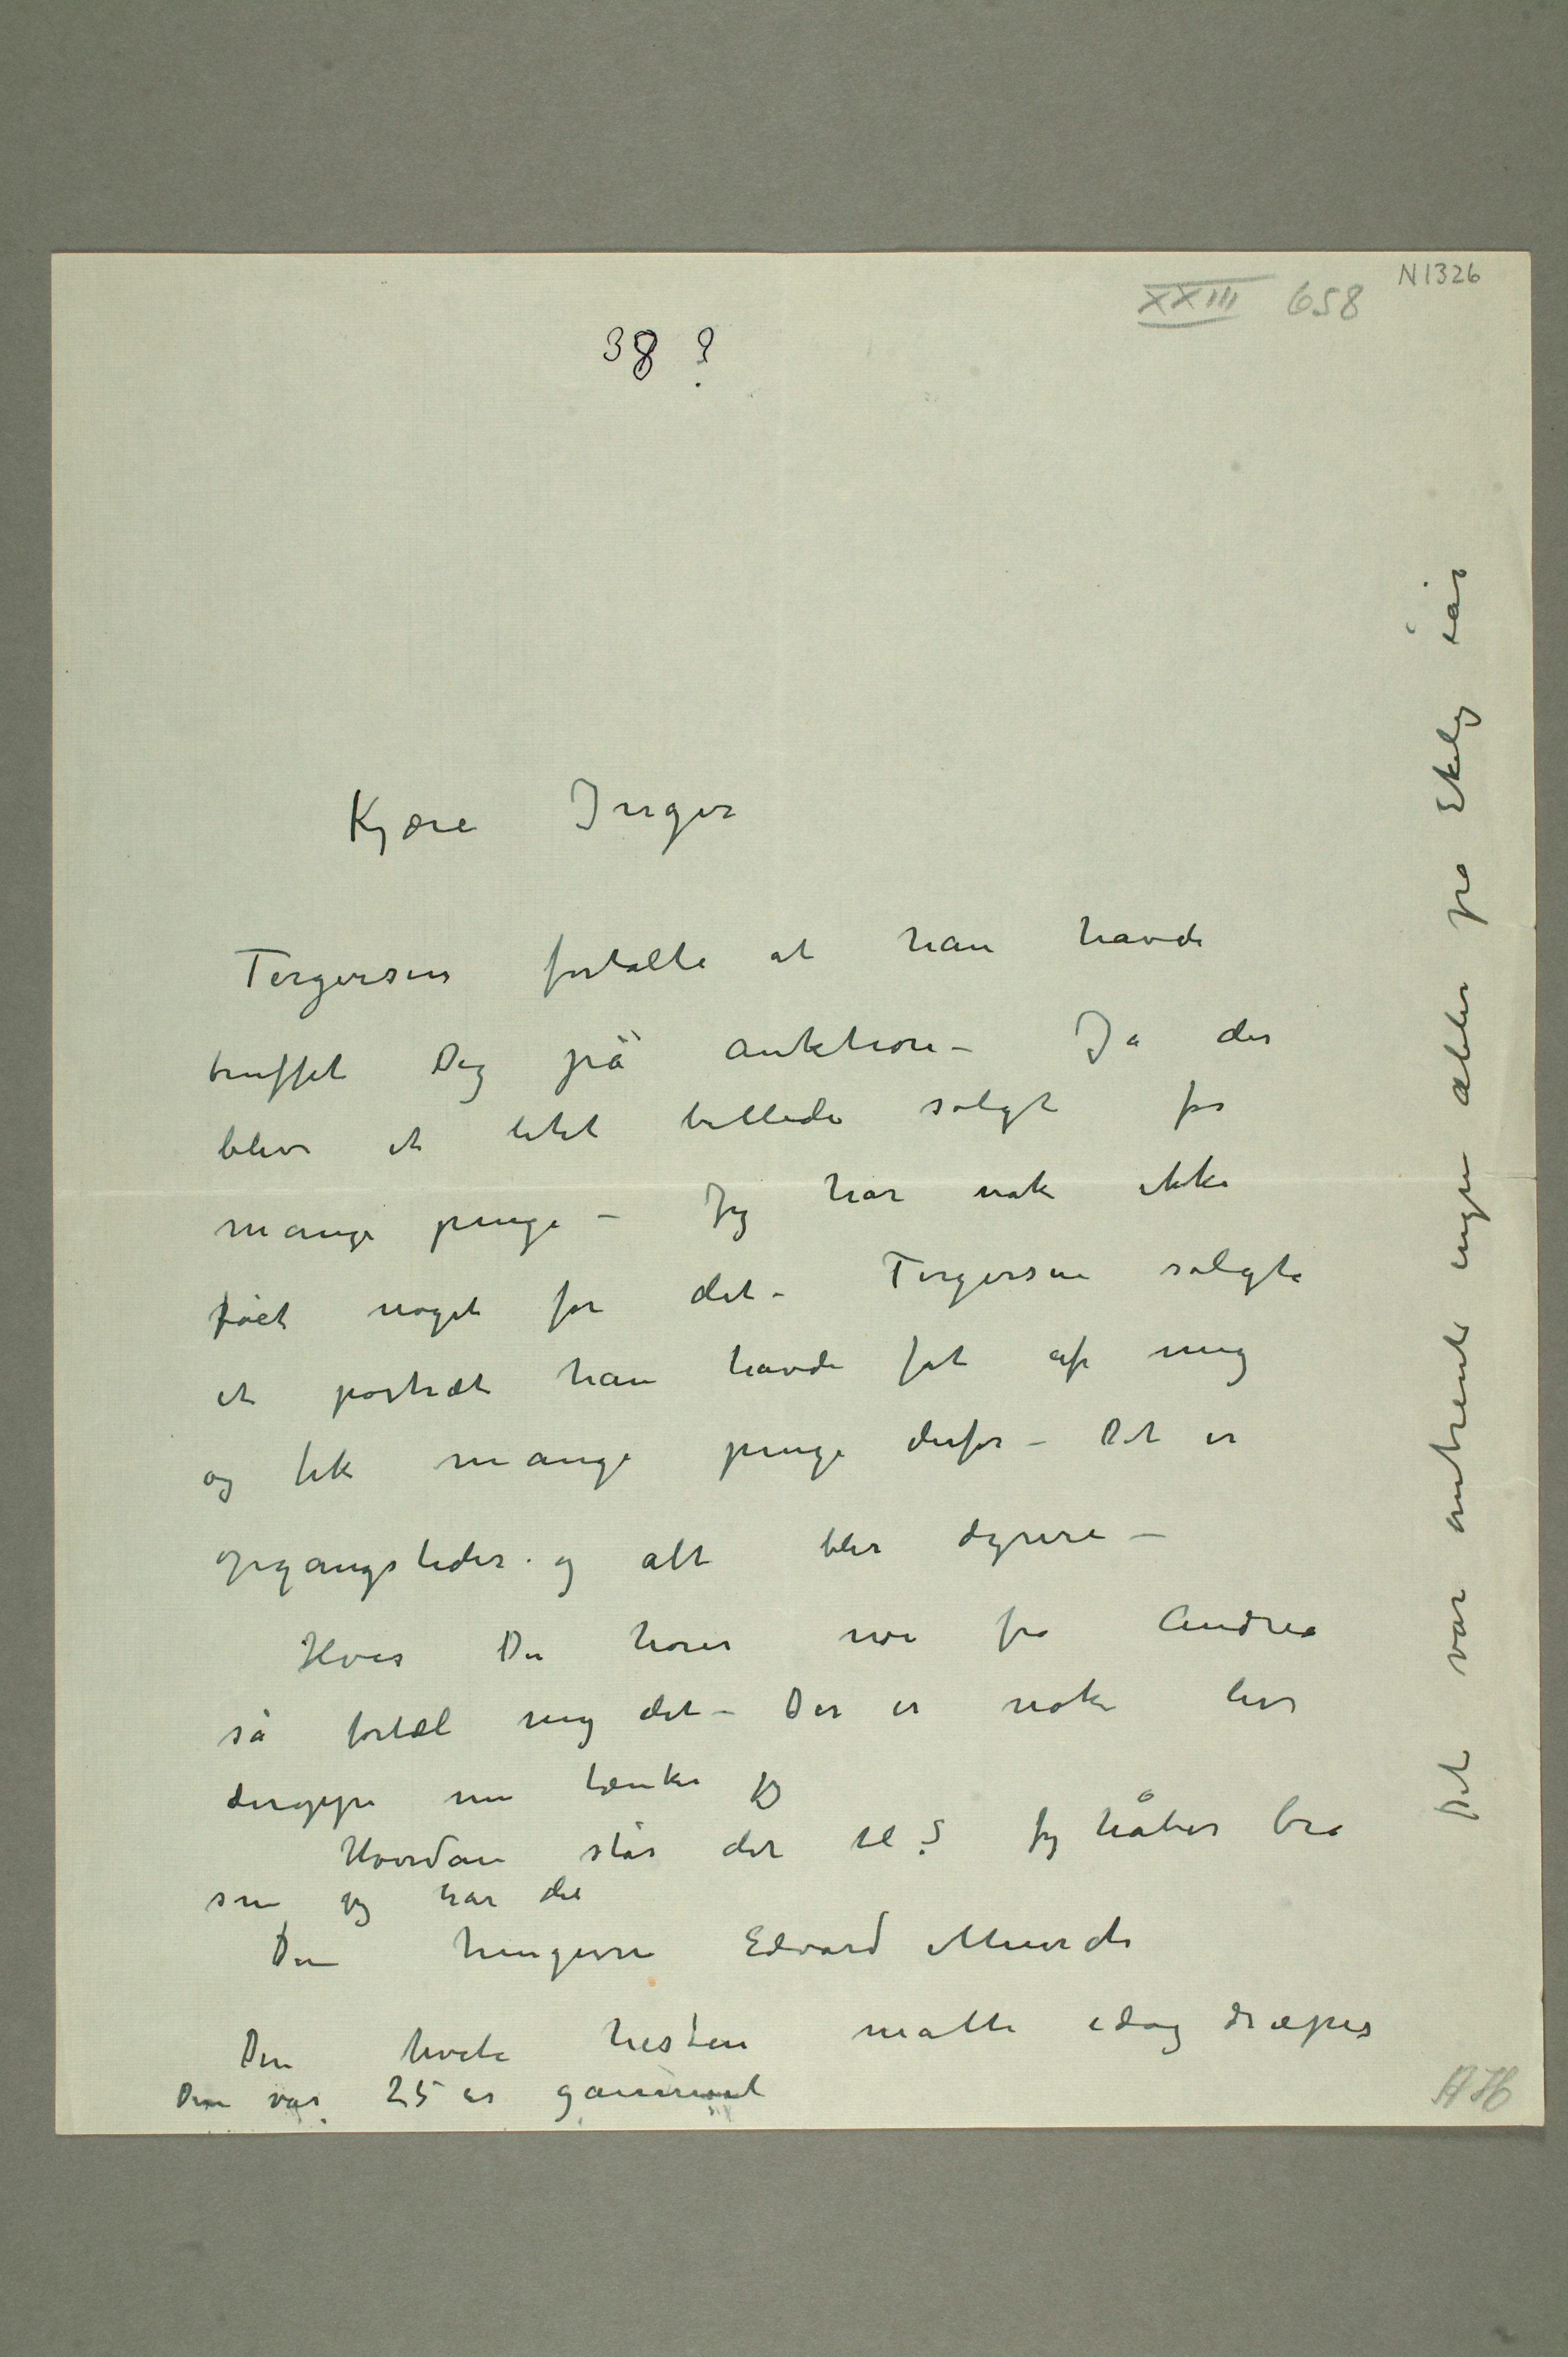 N 1326
XXIII 658
38 ?
Kjære Inger
Torgersen fortalte at han havde
truffet Dig på auktion – Ja der
blev et litet billede solgt for
mange penge – Jeg har nok ikke
fået noget for det – Torgersen solgte
et portræt han havde fåt af mig
og fik mange penge derfor – Det er
opgangstider og alt blir dyrere –
Hvis Du hører noe fra Andrea
så fortæl mig det – Der er nok liv
deroppe nu tænker jeg
Hvordan står det til? Jeg håber bra
som jeg har det
Din hengivne Edvard Munch
Den hvite hesten måtte idag dræpes
Den var 25 år gammel
Det var omtrent ingen æbler på Ekely iår
AH